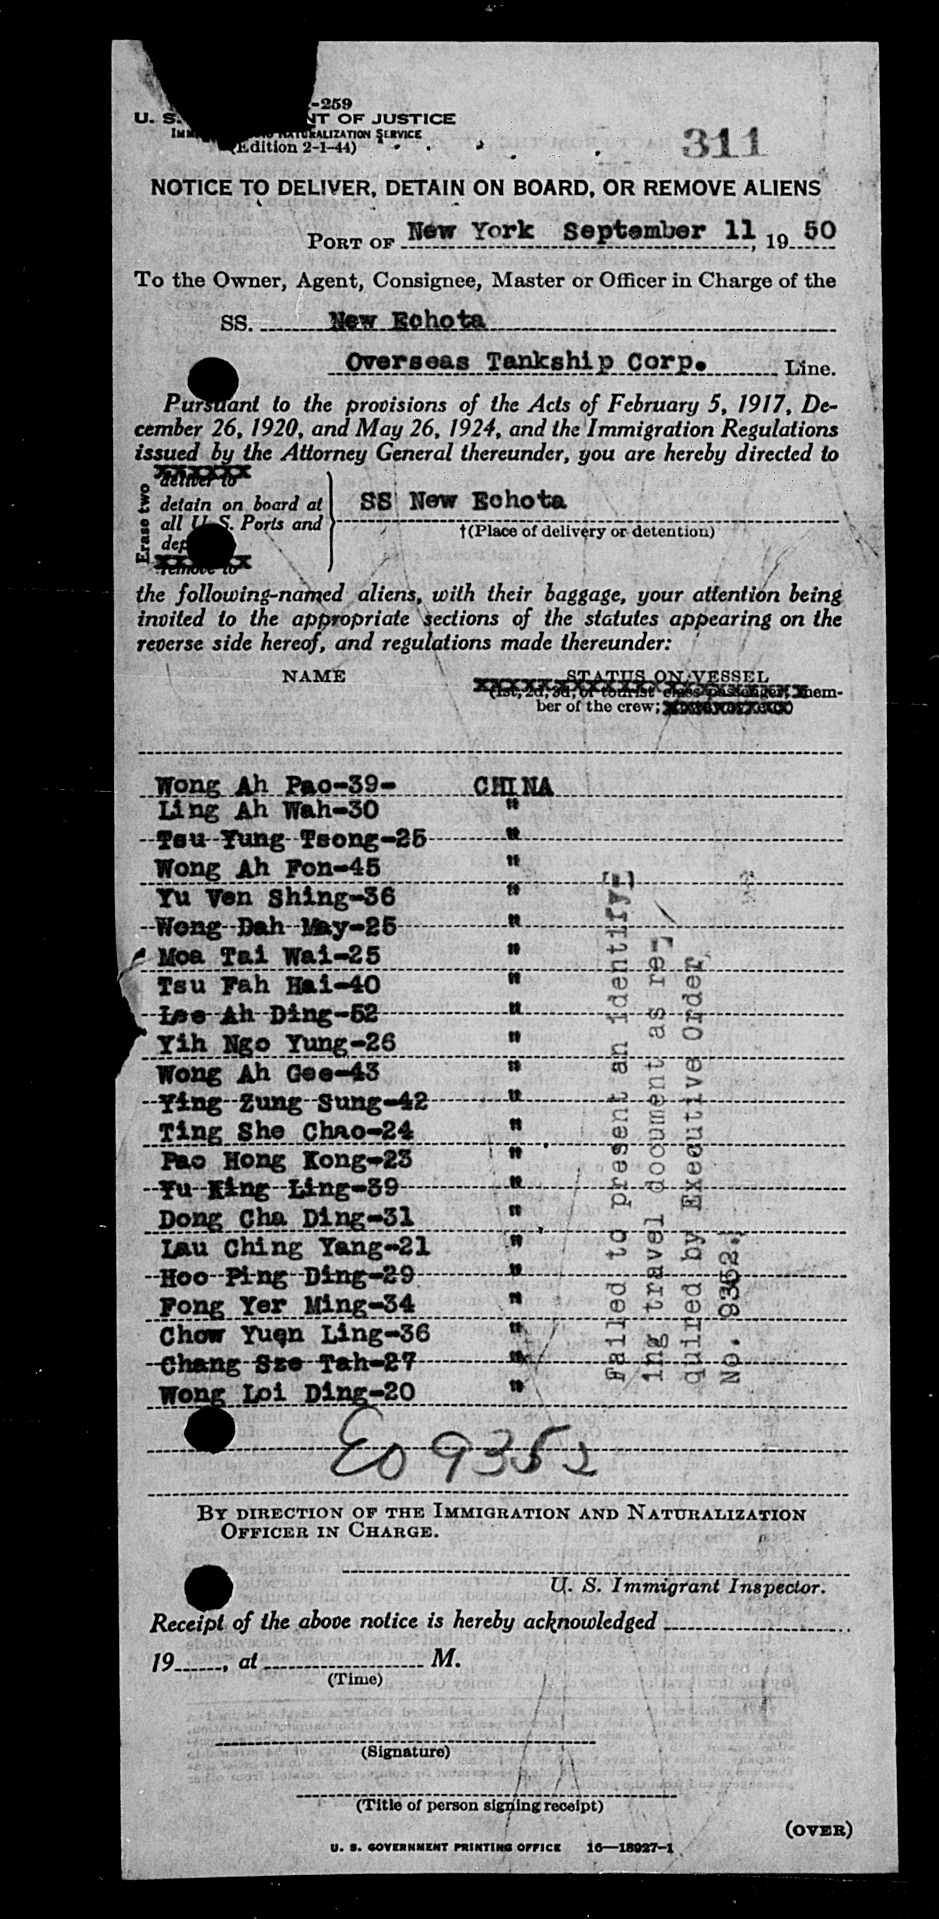 -259
U. S. NT OF JUSTICE
IMM NATURALIZATION SERVICE
(Edition 2-1-44)
311
NOTICE TO DELIVER, DETAIN ON BOARD, OR REMOVE ALIENS
PORT OF New York September 11, 19 50
To the Owner, Agent, Consignee, Master or Officer in Charge of the
SS. New Echota
Overseas Tankship Corp. Line.
Pursuant to the provisions of the Acts of February 5, 1917, De-
cember 26, 1920, and May 26, 1924, and the Immigration Regulations
issued by the Attorney General thereunder, you are hereby directed to
Erase two
deliver to
detain on board at
all U. S. Ports and
dep
remove to
SS New Echota
†(Place of delivery or detention)
the following-named aliens, with their baggage, your attention being
invited to the appropriate sections of the statutes appearing on the
reverse side hereof, and regulations made thereunder:
NAME STATUS ON VESSEL
(1st, 2d, 3d, or tourist class passenger, mem-
ber of the crew;
Wong Ah Pao-39- CHINA
Ling Ah Wah-30 "
Tsu Yung Tsong-25 "
Wong Ah Fon-45 "
Yu Ven Shing-36 "
Wong Dah May-25 "
Moa Tai Wai-25 "
Tsu Fah Hai-40 "
Lee Ah Ding-52 "
Yih Ngo Yung-26 "
Wong Ah Gee-43 "
Ying Zung Sung-42 "
Ting She Chao-24 "
Pao Hong Kong-23 "
Yu King Ling-39 "
Dong Cha Ding-31 "
Lau Ching Yang-21 "
Hoo Ping Ding-29 "
Fong Yer Ming-34 "
Chow Yuen Ling-36 "
Chang Sze Tah-27 "
Wong Loi Ding-20 "
Failed to present an identify-
ing travel document as re-
quired by Executive Order
No. 9352.
EO 9352
BY DIRECTION OF THE IMMIGRATION AND NATURALIZATION
OFFICER IN CHARGE.
U. S. Immigrant Inspector.
Receipt of the above notice is hereby acknowledged
19, at M.
(Time)
(Signature)
(Title of person signing receipt)
(OVER)
U. S. GOVERNMENT PRINTING OFFICE 16—18927-1